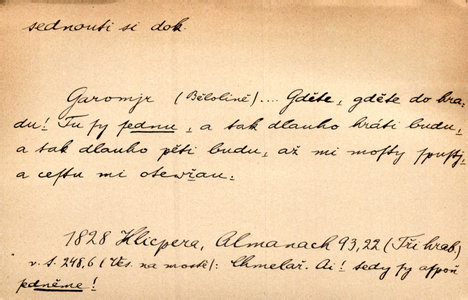 sednouti si dok.
Garomjr (Bělolině).... Gděte, gděte do hra-
du! Tu sy sednu, a tak dlauho hráti budu,
a tak dlauho pěti budu, až mi mosty spustj,
a cestu mi otewřau.
1828 Klicpera, Almanach 93,22 (Tři hrab.)
v. t. 248,6 (Ves. na mostě): Chmelař. Ai! tedy sy aspoň
sedněme!